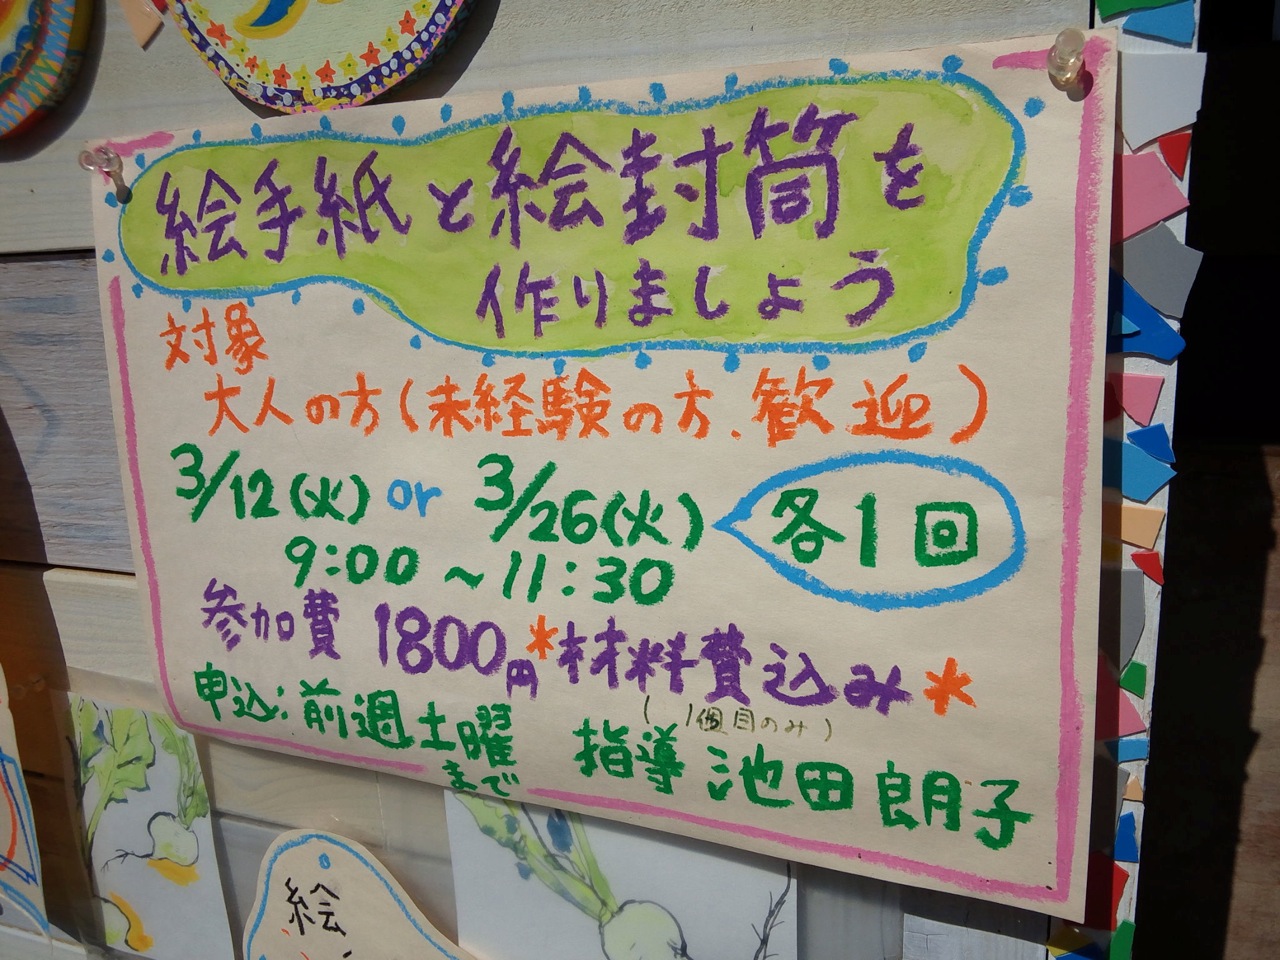 絵手紙と絵封筒を
作りましょう
対象
大人の方(未経験の方、歓迎)
3/12(火) or 3/26(火) 各1回
9:00~11:30
参加費 1800円*材料費込み*
(1個目のみ)
申込:前週土曜
まで
指導 池田朗子
絵